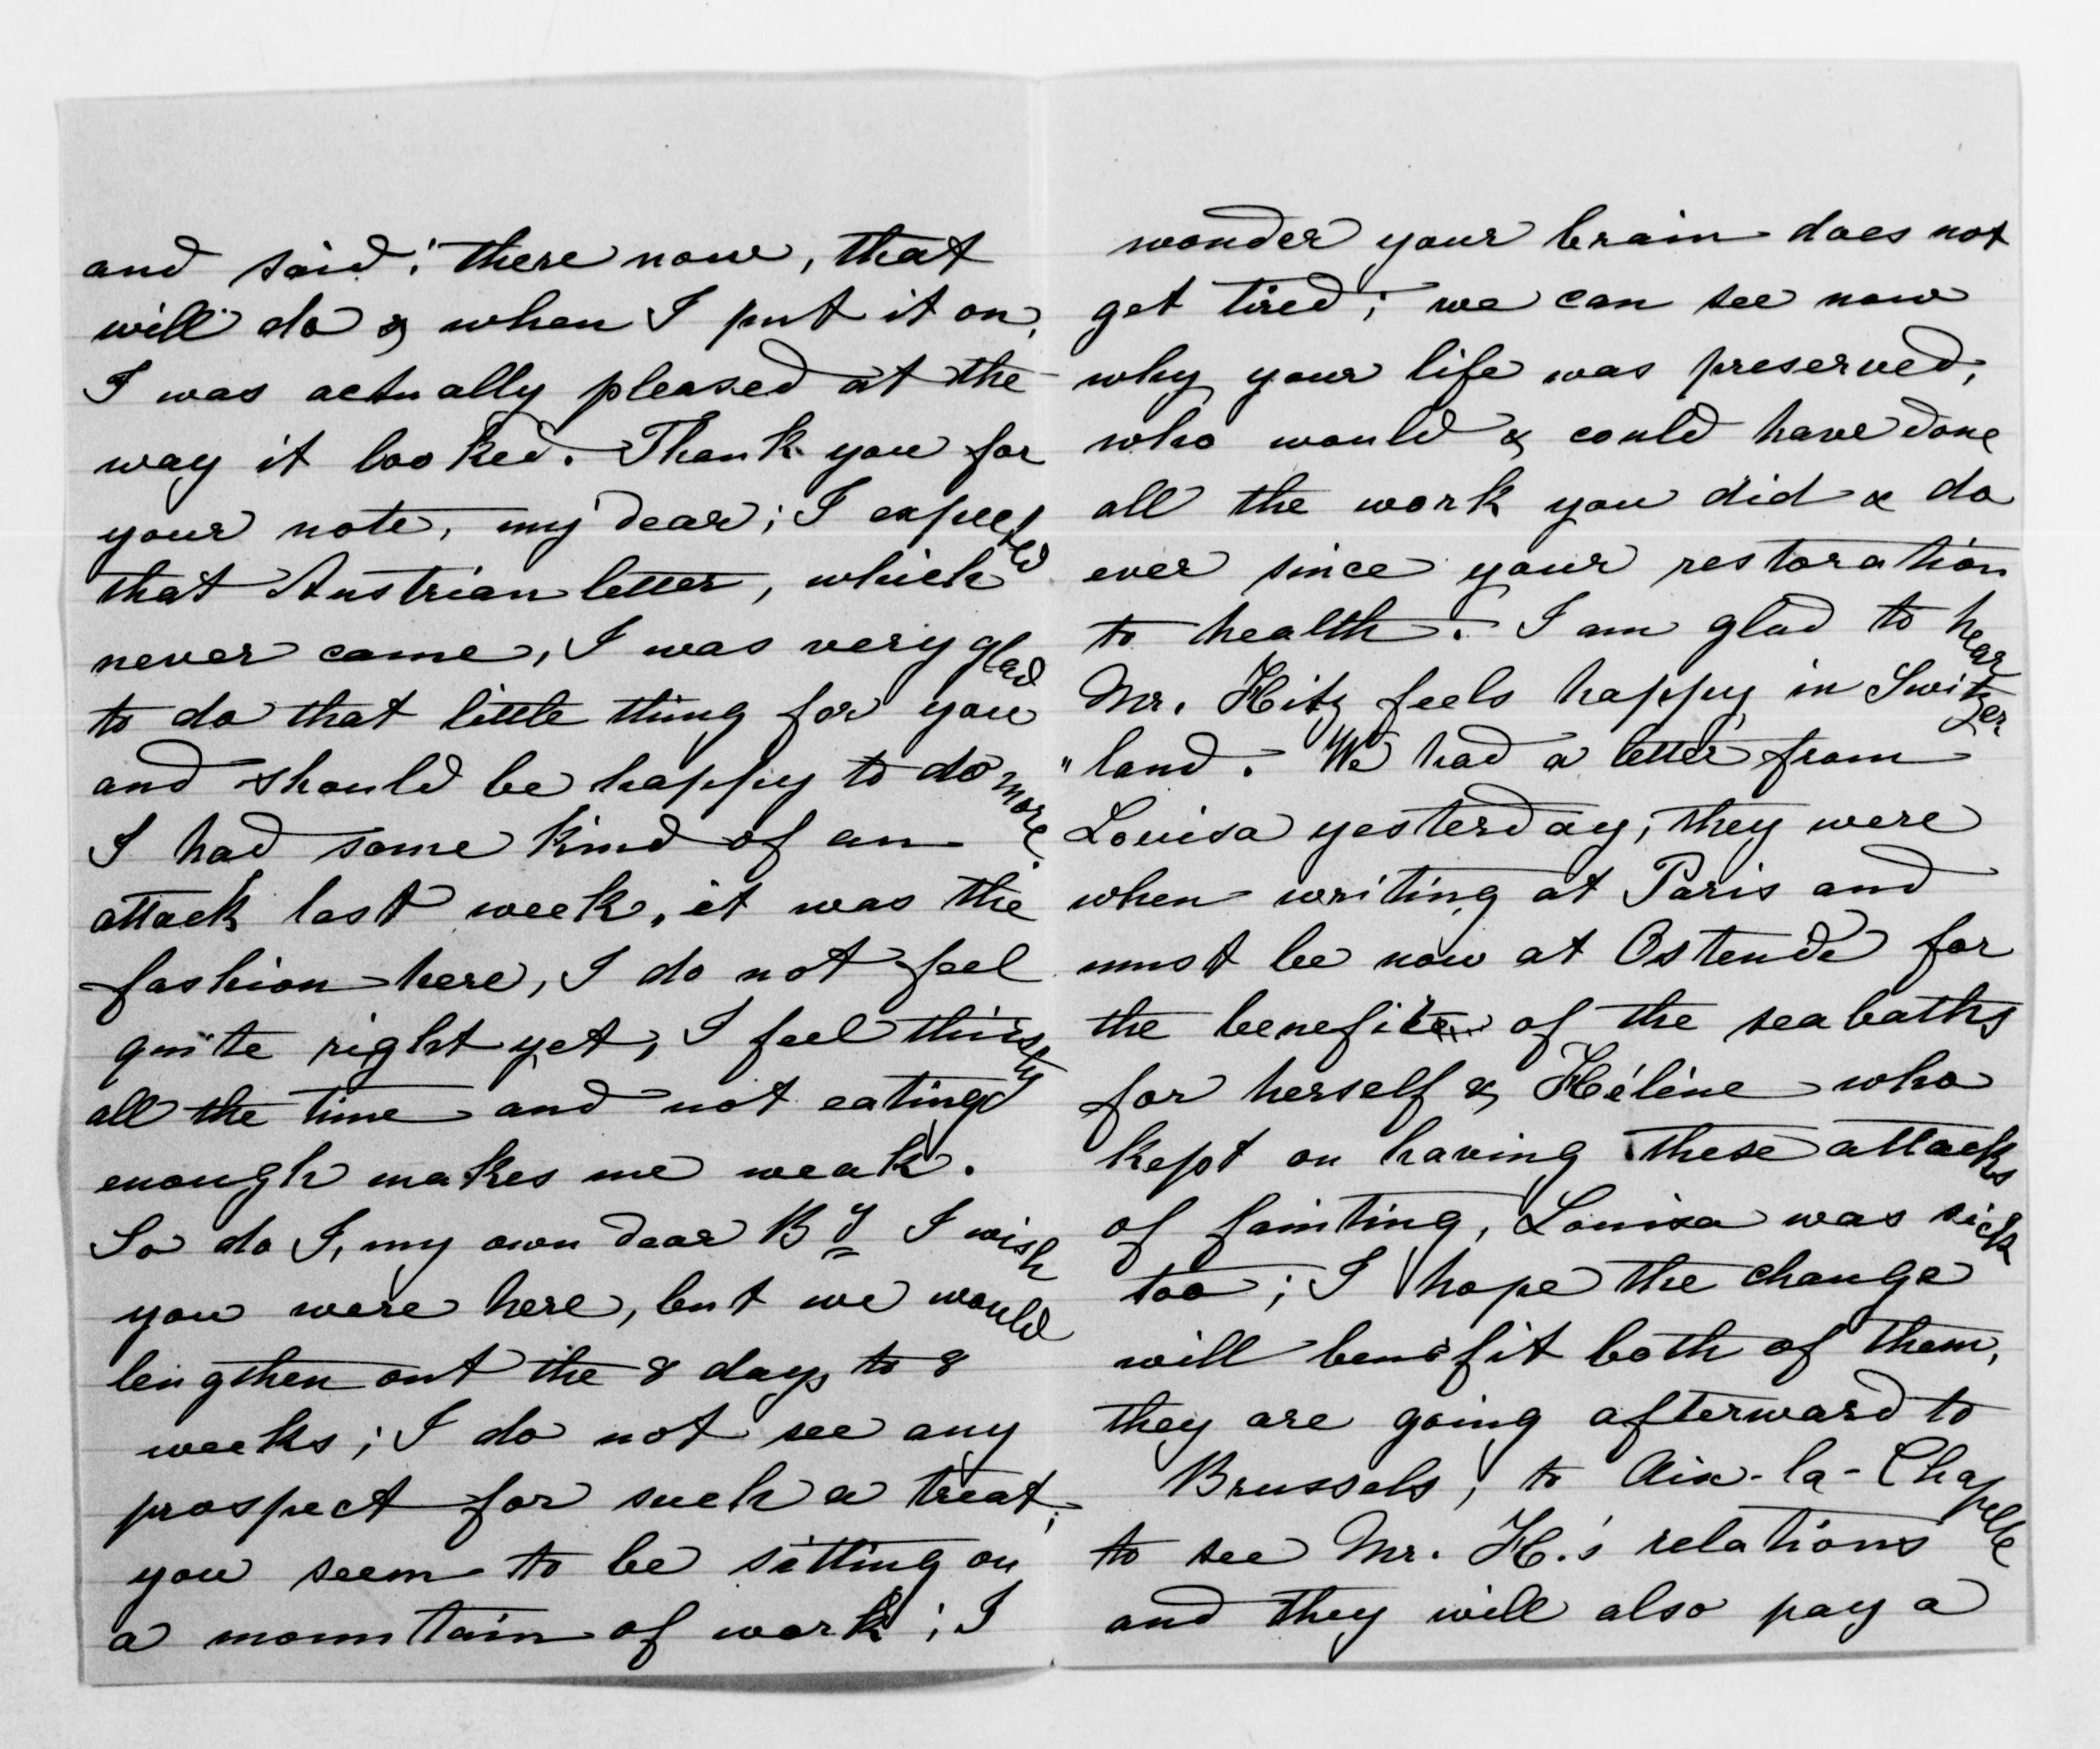 and said: "there now, that
will do & when I put it on,
I was actually pleased at the
way it looked. Thank you for
your note, my dear; I expected
that Austrian letter, which
never came, I was very glad
to do that little thing for you
and should be happy to do more.
I had some kind of an
attack last week, it was the
fashion here, I do not feel
quite right yet, I feel thirsty
all the time and not eating
enough makes me weak.
So do I, my own dear By I wish
you were here, but we would
lengthen out the 8 days to 8
weeks; I do not see any
prospect for such a treat,
you seem to be sitting on
a mountain of work; I
wonder your brain does not
get tired; we can see now
why your life was preserved,
who would & could have done
all the work you did & do
ever since your restoration
to health. I am glad to hear
Mr. Hitz feels happy in Switzer
"land. We had a letter from
Louisa yesterday, they were
when writing at Paris and
must be now at Ostende for
the benefit of the seabaths
for herself & Hélène who
kept on having these attacks
of fainting, Louisa was sick
too; I hope the change
will benefit both of them,
they are going afterward to
Brussels, to Aix-la-Chapelle
to see Mr. H.'s relations
and they will also pay a